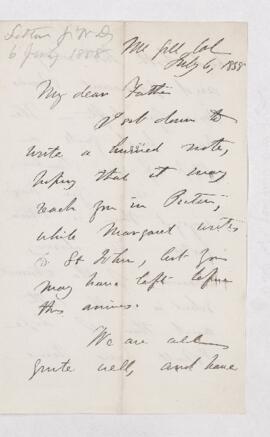 Letter J.W.D
6 July 1858
McGill Col
July 6, 1858
My dear Father
I sit down to
write a hurried note,
hoping that it may
reach you in Pictou,
while Margaret writes
to St John, lest you
may have left before
this arrives.
We are all
quite well, and have